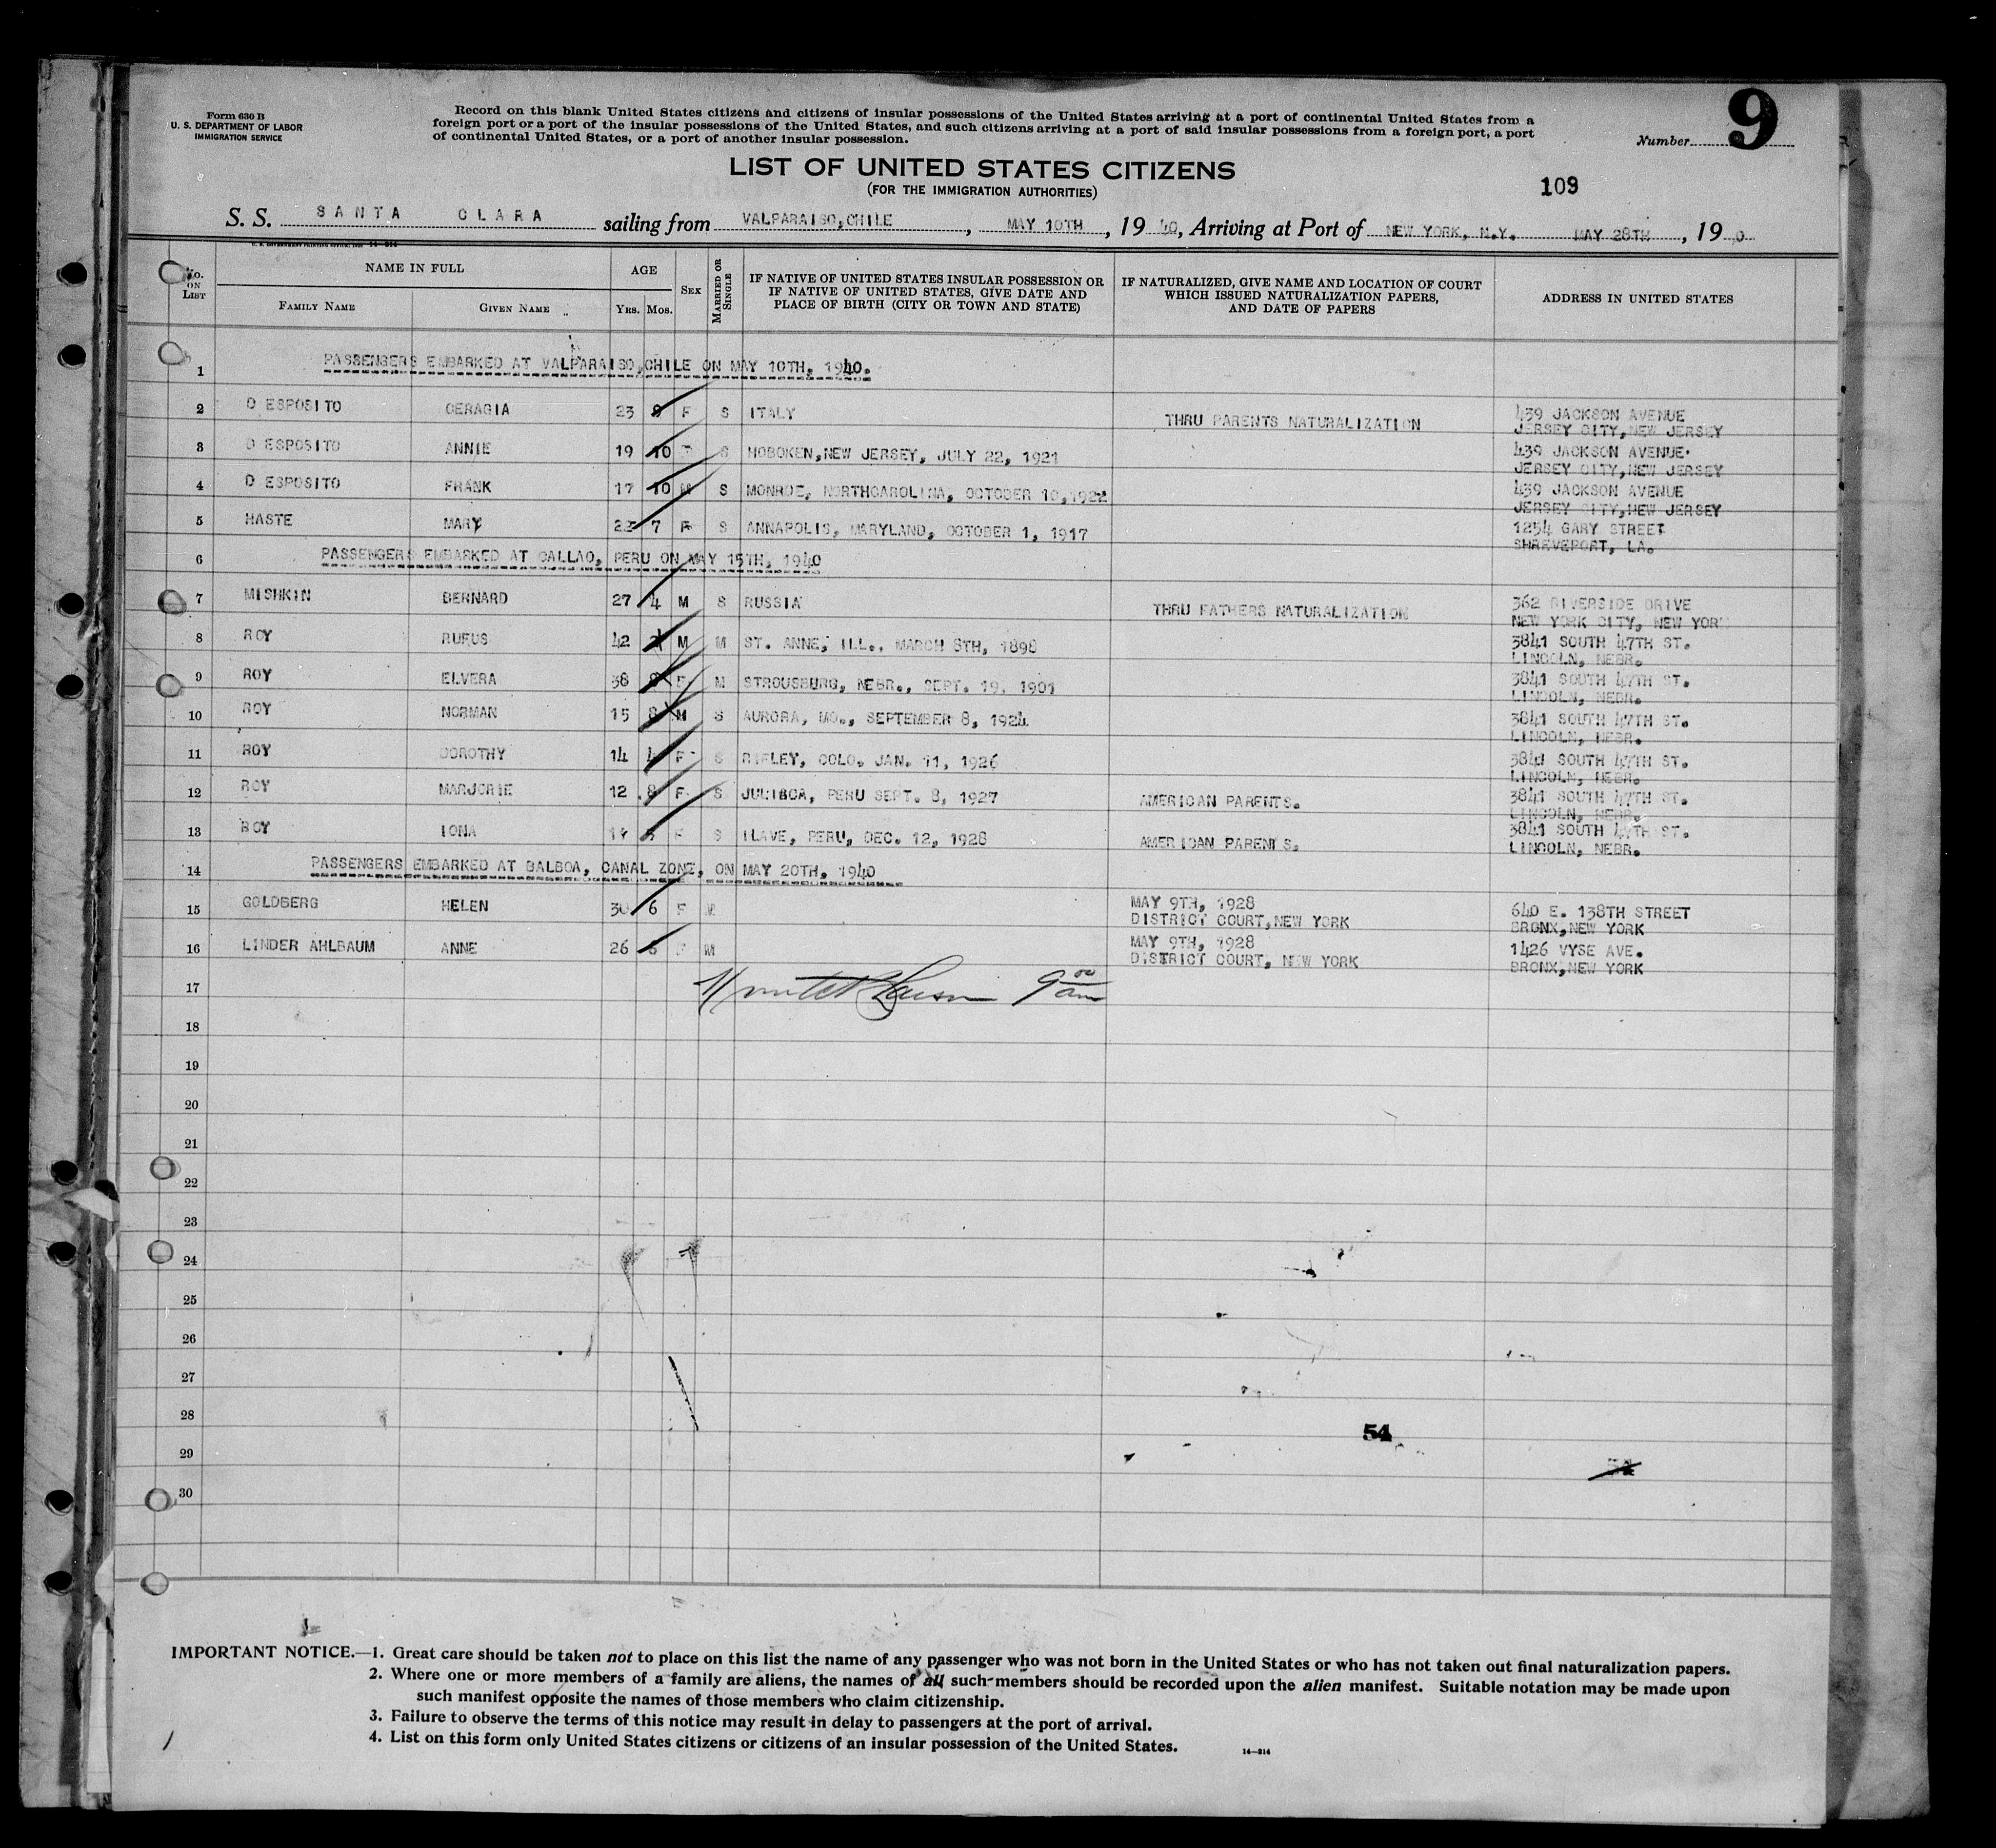 Form 630 B
U. S. DEPARTMENT OF LABOR
IMMIGRATION SERVICE
Record on this blank United States citizens and citizens of insular possessions of the United States arriving at a port of continental United States from a
foreign port or a port of the insular possessions of the United States, and such citizens arriving at a port of said insular possessions from a foreign port, a port
of continental United States, or a port of another insular possession.
Number 9
LIST OF UNITED STATES CITIZENS
(FOR THE IMMIGRATION AUTHORITIES)
109
S. S. SANTA CLARA sailing from VALPARAISO, CHILE, MAY 10TH, 1940, Arriving at Port of NEW YORK, N.Y. MAY 28TH, 19 0
No. ON LIST
NAME IN FULL
FAMILY NAME GIVEN NAME
AGE
YRS. MOS.
SEX
MARRIED OR SINGLE
IF NATIVE OF UNITED STATES INSULAR POSSESSION OR
IF NATIVE OF UNITED STATES, GIVE DATE AND
PLACE OF BIRTH (CITY OR TOWN AND STATE)
IF NATURALIZED, GIVE NAME AND LOCATION OF COURT
WHICH ISSUED NATURALIZATION PAPERS,
AND DATE OF PAPERS
ADDRESS IN UNITED STATES
1 PASSENGERS EMBARKED AT VALPARAISO, CHILE ON MAY 10TH, 1940.
2 D ESPOSITO GERAGIA 23 F S ITALY THRU PARENTS NATURALIZATION 439 JACKSON AVENUE
JERSEY CITY, NEW JERSEY
3 D ESPOSITO ANNIE 19 10 S HOBOKEN, NEW JERSEY, JULY 22, 1921 439 JACKSON AVENUE
JERSEY CITY, NEW JERSEY
4 D ESPOSITO FRANK 17 10 M S MONROE, NORTHCAROLINA, OCTOBER 10, 1922 439 JACKSON AVENUE
JERSEY CITY, NEW JERSEY
5 HASTE MARY 22 7 F S ANNAPOLIS, MARYLAND, OCTOBER 1, 1917 1254 GARY STREET
SHREVEPORT, LA.
6 PASSENGERS EMBARKED AT CALLAO, PERU ON MAY 15TH, 1940
7 MISHKIN BERNARD 27 4 M S RUSSIA THRU FATHERS NATURALIZATION 362 RIVERSIDE DRIVE
NEW YORK CITY, NEW YOR
8 ROY RUFUS 42 M M ST. ANNE, ILL., MARCH 5TH, 1898 3841 SOUTH 47TH ST.
LINCOLN, NEBR.
9 ROY ELVERA 38 8 F M STROUSBURG, NEBR., SEPT. 19, 1901 3841 SOUTH 47TH ST.
LINCOLN, NEBR.
10 ROY NORMAN 15 8 M S AURORA, MO., SEPTEMBER 8, 1924 3841 SOUTH 47TH ST.
LINCOLN, NEBR.
11 ROY DOROTHY 14 4 F S RIFLEY, COLO. JAN. 11, 1926 3841 SOUTH 47TH ST.
LINCOLN, NEBR.
12 ROY MARJORIE 12 8 F S JULIBCA, PERU SEPT. 8, 1927 AMERICAN PARENTS. 3841 SOUTH 47TH ST.
LINCOLN, NEBR.
13 ROY IONA 11 F S ILAVE, PERU, DEC. 12, 1928 AMERICAN PARENTS. 3841 SOUTH 47TH ST.
LINCOLN, NEBR.
14 PASSENGERS EMBARKED AT BALBOA, CANAL ZONE, ON MAY 20TH, 1940
15 GOLDBERG HELEN 30 6 F M MAY 9TH, 1928
DISTRICT COURT, NEW YORK 640 E. 138TH STREET
BRONX, NEW YORK
16 LINDER AHLBAUM ANNE 26 F M MAY 9TH, 1928
DISTRICT COURT, NEW YORK 1426 VYSE AVE.
BRONX, NEW YORK
17 9 00 am
18
19
20
21
22
23
24
25
26
27
28 54
29 54
30
IMPORTANT NOTICE.—1. Great care should be taken not to place on this list the name of any passenger who was not born in the United States or who has not taken out final naturalization papers.
2. Where one or more members of a family are aliens, the names of all such members should be recorded upon the alien manifest. Suitable notation may be made upon
such manifest opposite the names of those members who claim citizenship.
3. Failure to observe the terms of this notice may result in delay to passengers at the port of arrival.
4. List on this form only United States citizens or citizens of an insular possession of the United States.
14—214